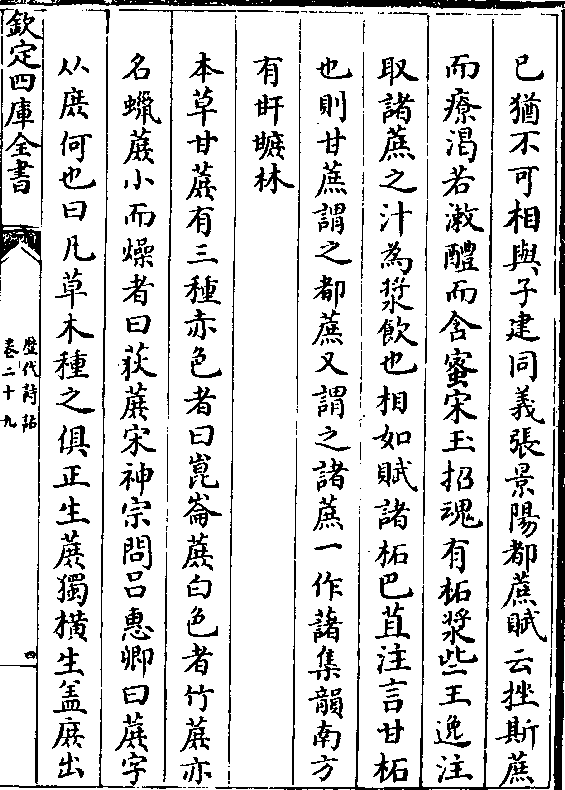 已猶不可相與子建同義張景陽都蔗賦云挫斯蔗
而療渴若漱醴而含蜜宋玉招魂有柘漿些王逸注
取諸蔗之汁為漿飲也相如賦諸柘巴苴注言甘柘
也則甘蔗謂之都蔗又謂之諸蔗一作藷集韻南方
有㽏𤮜林
本草甘蔗有三種赤色者曰崑崙蔗白色者竹蔗亦
名蠟蔗小而燥者曰荻蔗宋神宗問吕惠卿曰蔗字
从庶何也曰凡草木種之俱正生蔗獨横生盖庶出
欽定四庫全書
歴代詩話
卷二十九
四